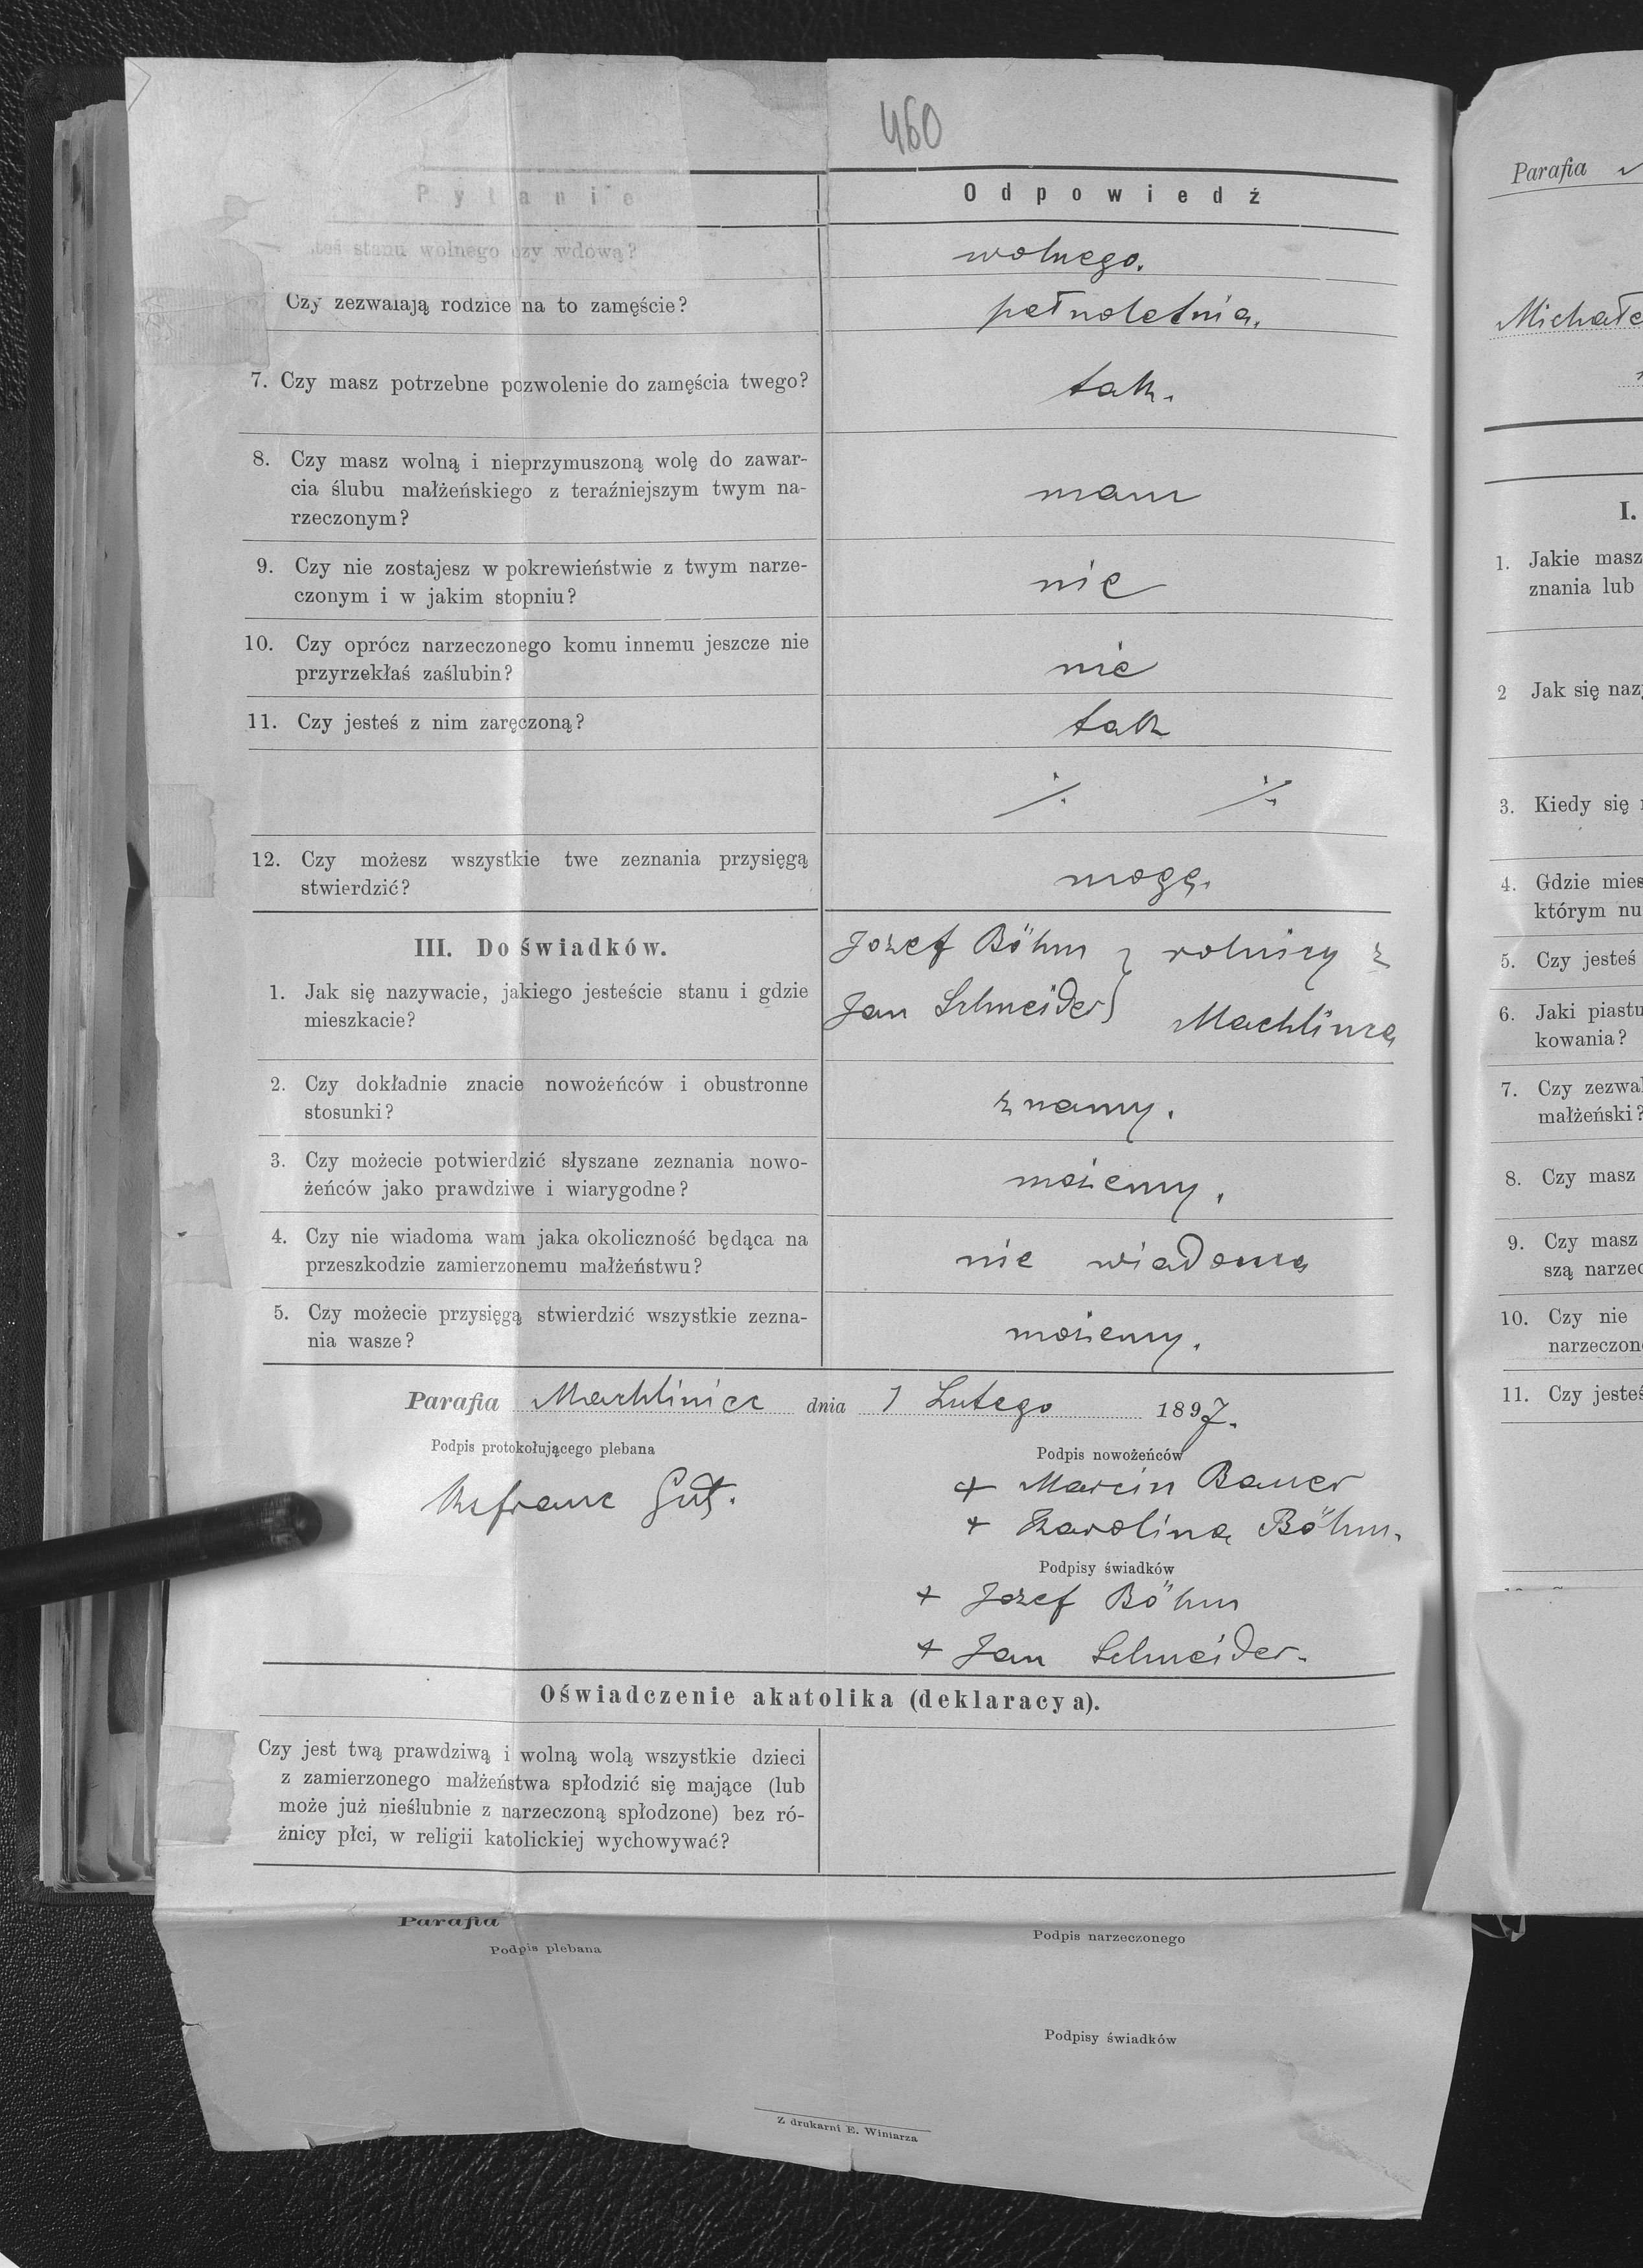 460
Pytanie
Odpowiedź
steś stanu wolnego czy wdową?
wolnego.
Czy zezwalają rodzice na to zamęście?
pełnoletnia.
7. Czy masz potrzebne pozwolenie do zamęścia twego?
tak.
8. Czy masz wolną i nieprzymuszoną wolę do zawar-
cia ślubu małżeńskiego z teraźniejszym twym na-
rzeczonym?
mam
9. Czy nie zostajesz w pokrewieństwie z twym narze-
czonym i w jakim stopniu?
nie
10. Czy oprócz narzeczonego komu innemu jeszcze nie
przyrzekłaś zaślubin?
nie
11. Czy jesteś z nim zaręczoną?
tak
⁒ ⁒
12. Czy możesz wszystkie twe zeznania przysięgą
stwierdzić?
mogę.
III. Do świadków.
1. Jak się nazywacie, jakiego jesteście stanu i gdzie
mieszkacie?
Jozef Böhm } rolnicy z
Jan Schneider } Machlińca
2. Czy dokładnie znacie nowożeńców i obustronne
stosunki?
znamy.
3. Czy możecie potwierdzić słyszane zeznania nowo-
żeńców jako prawdziwe i wiarygodne?
możemy.
4. Czy nie wiadoma wam jaka okoliczność będąca na
przeszkodzie zamierzonemu małżeństwu?
nie wiadoma
5. Czy możecie przysięgą stwierdzić wszystkie zezna-
nia wasze?
możemy.
Parafia Machliniec dnia 1 Lutego 1897.
Podpis protokołującego plebana
Podpis nowożeńców
+ Marcin Bauer
+ Karolina Böhm.
Podpisy świadków
+ Jozef Böhm
+ Jan Schneider.
Oświadczenie akatolika (deklaracya).
Czy jest twą prawdziwą i wolną wolą wszystkie dzieci
z zamierzonego małżeństwa spłodzić się mające (lub
może już nieślubnie z narzeczoną spłodzone) bez ró-
żnicy płci, w religii katolickiej wychowywać?
Parafia
Podpis plebana
Podpis narzeczonego
Podpisy świadków
Z drukarni E. Winiarza
Parafia
Michałe
I.
1. Jakie masz
znania lub
2 Jak się nazy
3. Kiedy się
4. Gdzie mies
którym nu
5. Czy jesteś
6. Jaki piastu
kowania?
7. Czy zezwal
małżeński?
8. Czy masz
9. Czy masz
szą narzec
10. Czy nie
narzeczon
11. Czy jesteś